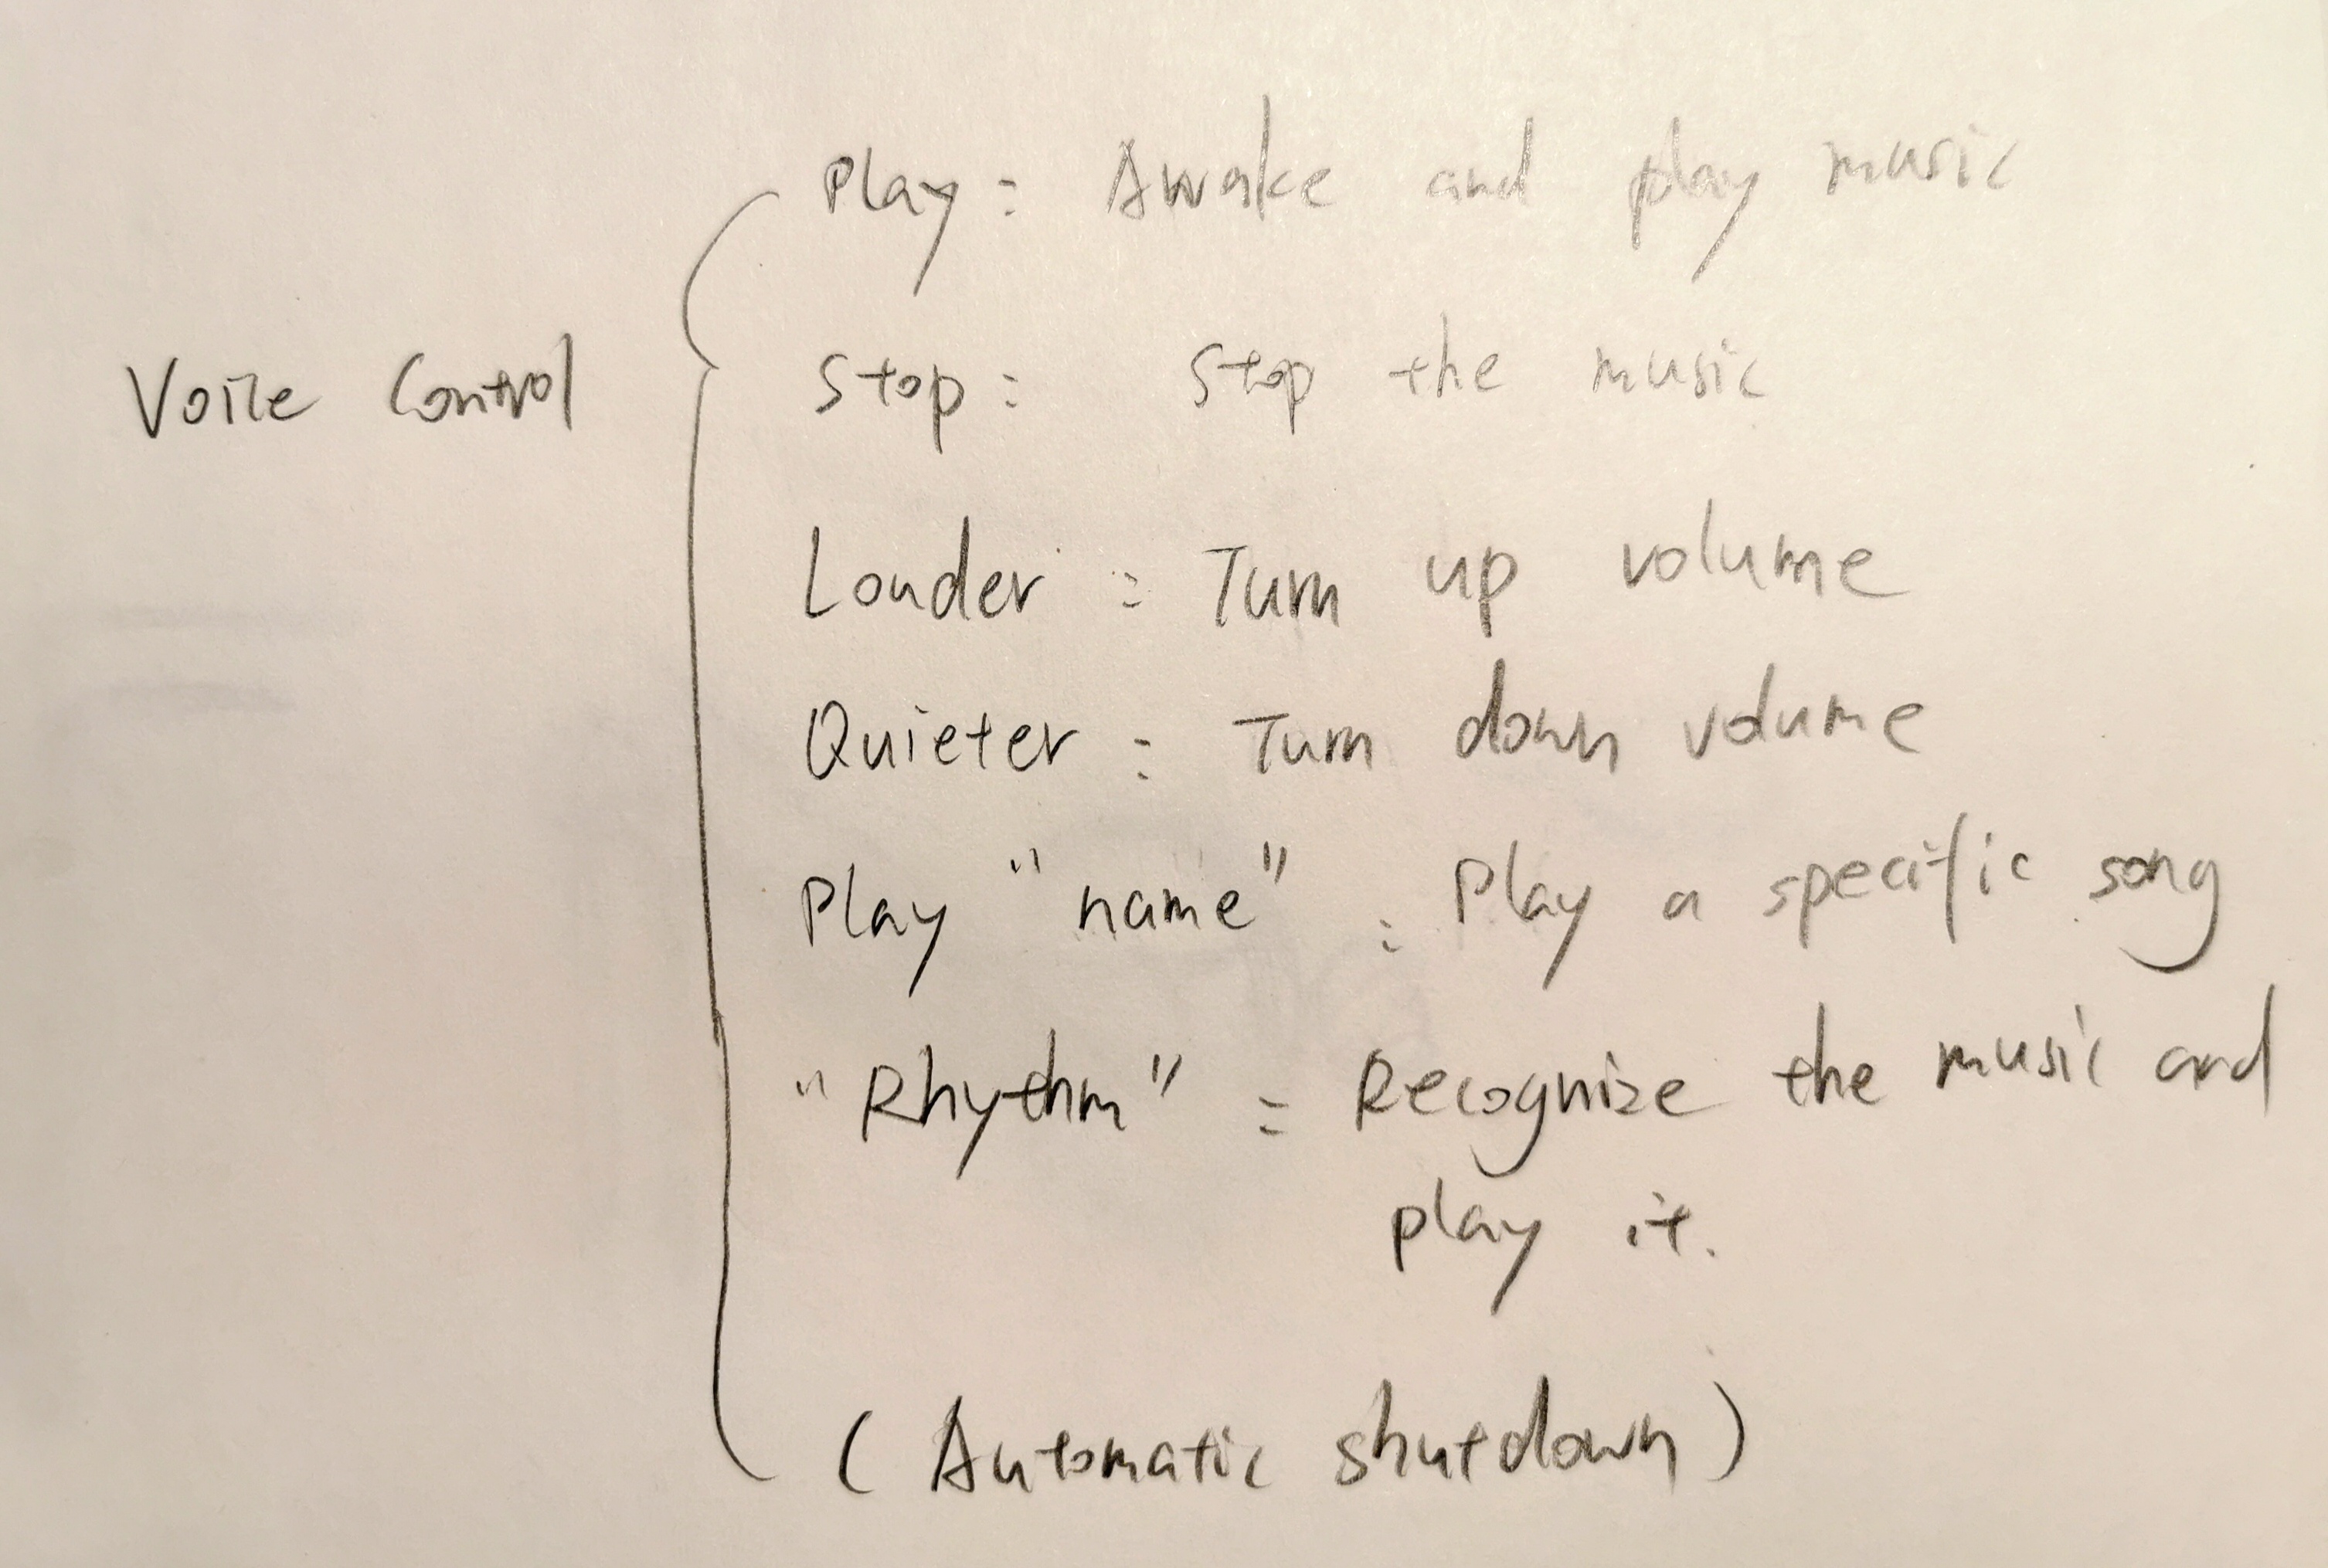 Voice Control
Play : Awake and play music
Stop : Stop the music
Louder : Turn up volume
Quieter : Turn down volume
Play "name" : Play a specific song
"Rhythm" : Recognize the music and
play it.
(Automatic shutdown)